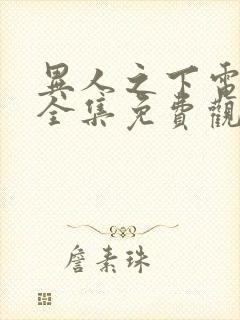 異人之下電
全集免費觀
詹素珠